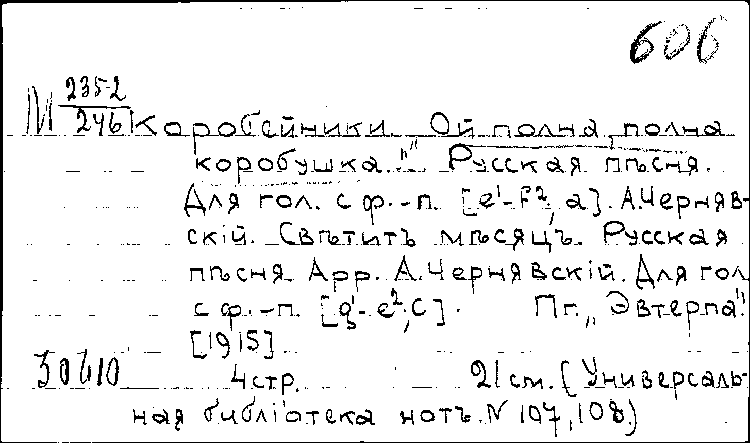 606
М 235-2
246 Коробейники. Ой полна, полна
коробушка." Русская пѣсня.
Для гол. с ф.-п. [e¹-f², a]. А.Чернявскій.
скій. Свѣтитъ мѣсяцъ. Русская
пѣсня Арр. А.Чернявскій. Для гол
с ф.-п. [g¹-e², C]. Пг. „Эвтерпа"
[1915]
30610 4 стр. 21 см. (Универсаль-
ная библіотека нотъ. N 107, 108)